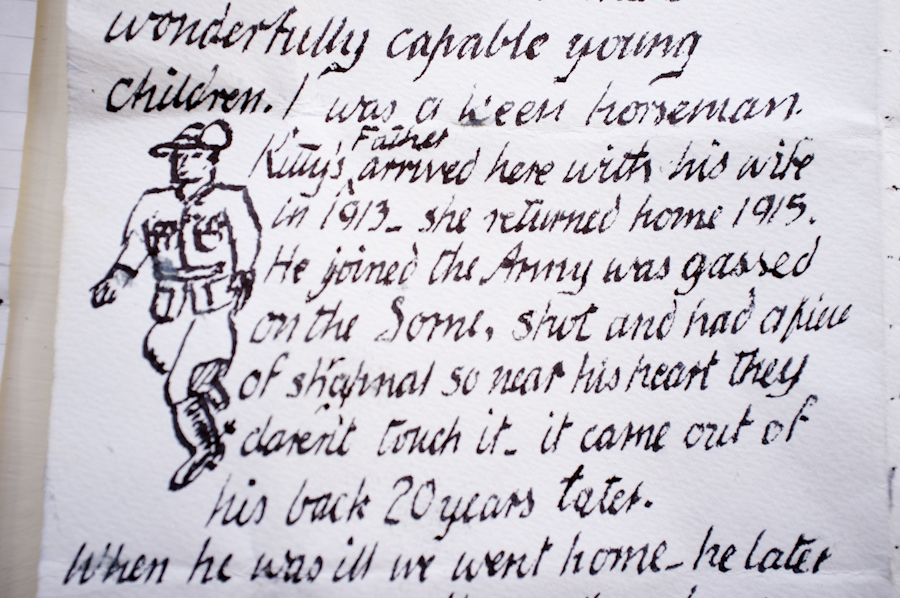 wonderfully capable young
children. I was a keen horseman.
Father
Kitty's arrived here with his wife
in 1913_ she returned home 1915.
He joined the Army was gassed
on the Some, shot and had a piece
of shrapnal so near his heart they
daren't touch it_ it came out of
his back 20 years later.
When he was ill we went home_he later